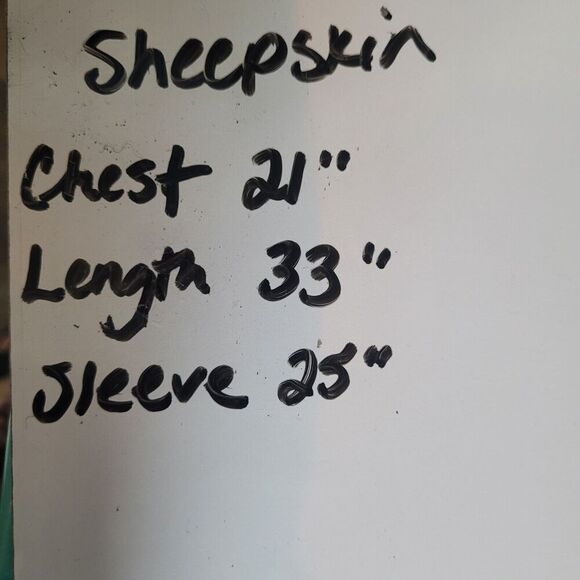 Sheepskin
Chest 21"
Length 33"
Sleeve 25"